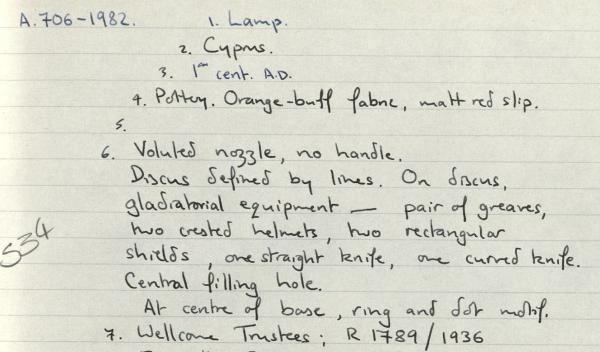 A.706-1982. 1. Lamp.
2. Cyprus.
3. 1st cent. A.D.
4. Pottery. Orange-buff fabric, matt red slip.
5.
6. Voluted nozzle, no handle.
Discus defined by lines. On discus,
gladiatorial equipment — pair of greaves,
two crested helmets, two rectangular
shields, one straight knife, one curved knife.
Central filling hole.
At centre of base, ring and dot motif.
534
7. Wellcome Trustees; R 1789/1936